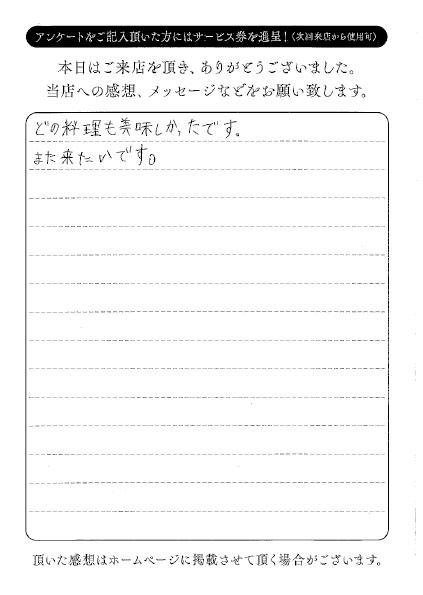 アンケートをご記入頂いた方にはサービス券を進呈!(次回来店から使用可)
本日はご来店を頂き、ありがとうございました。
当店への感想、メッセージなどをお願い致します。
どの料理も美味しかったです。
また来たいです。
頂いた感想はホームページに掲載させて頂く場合がございます。